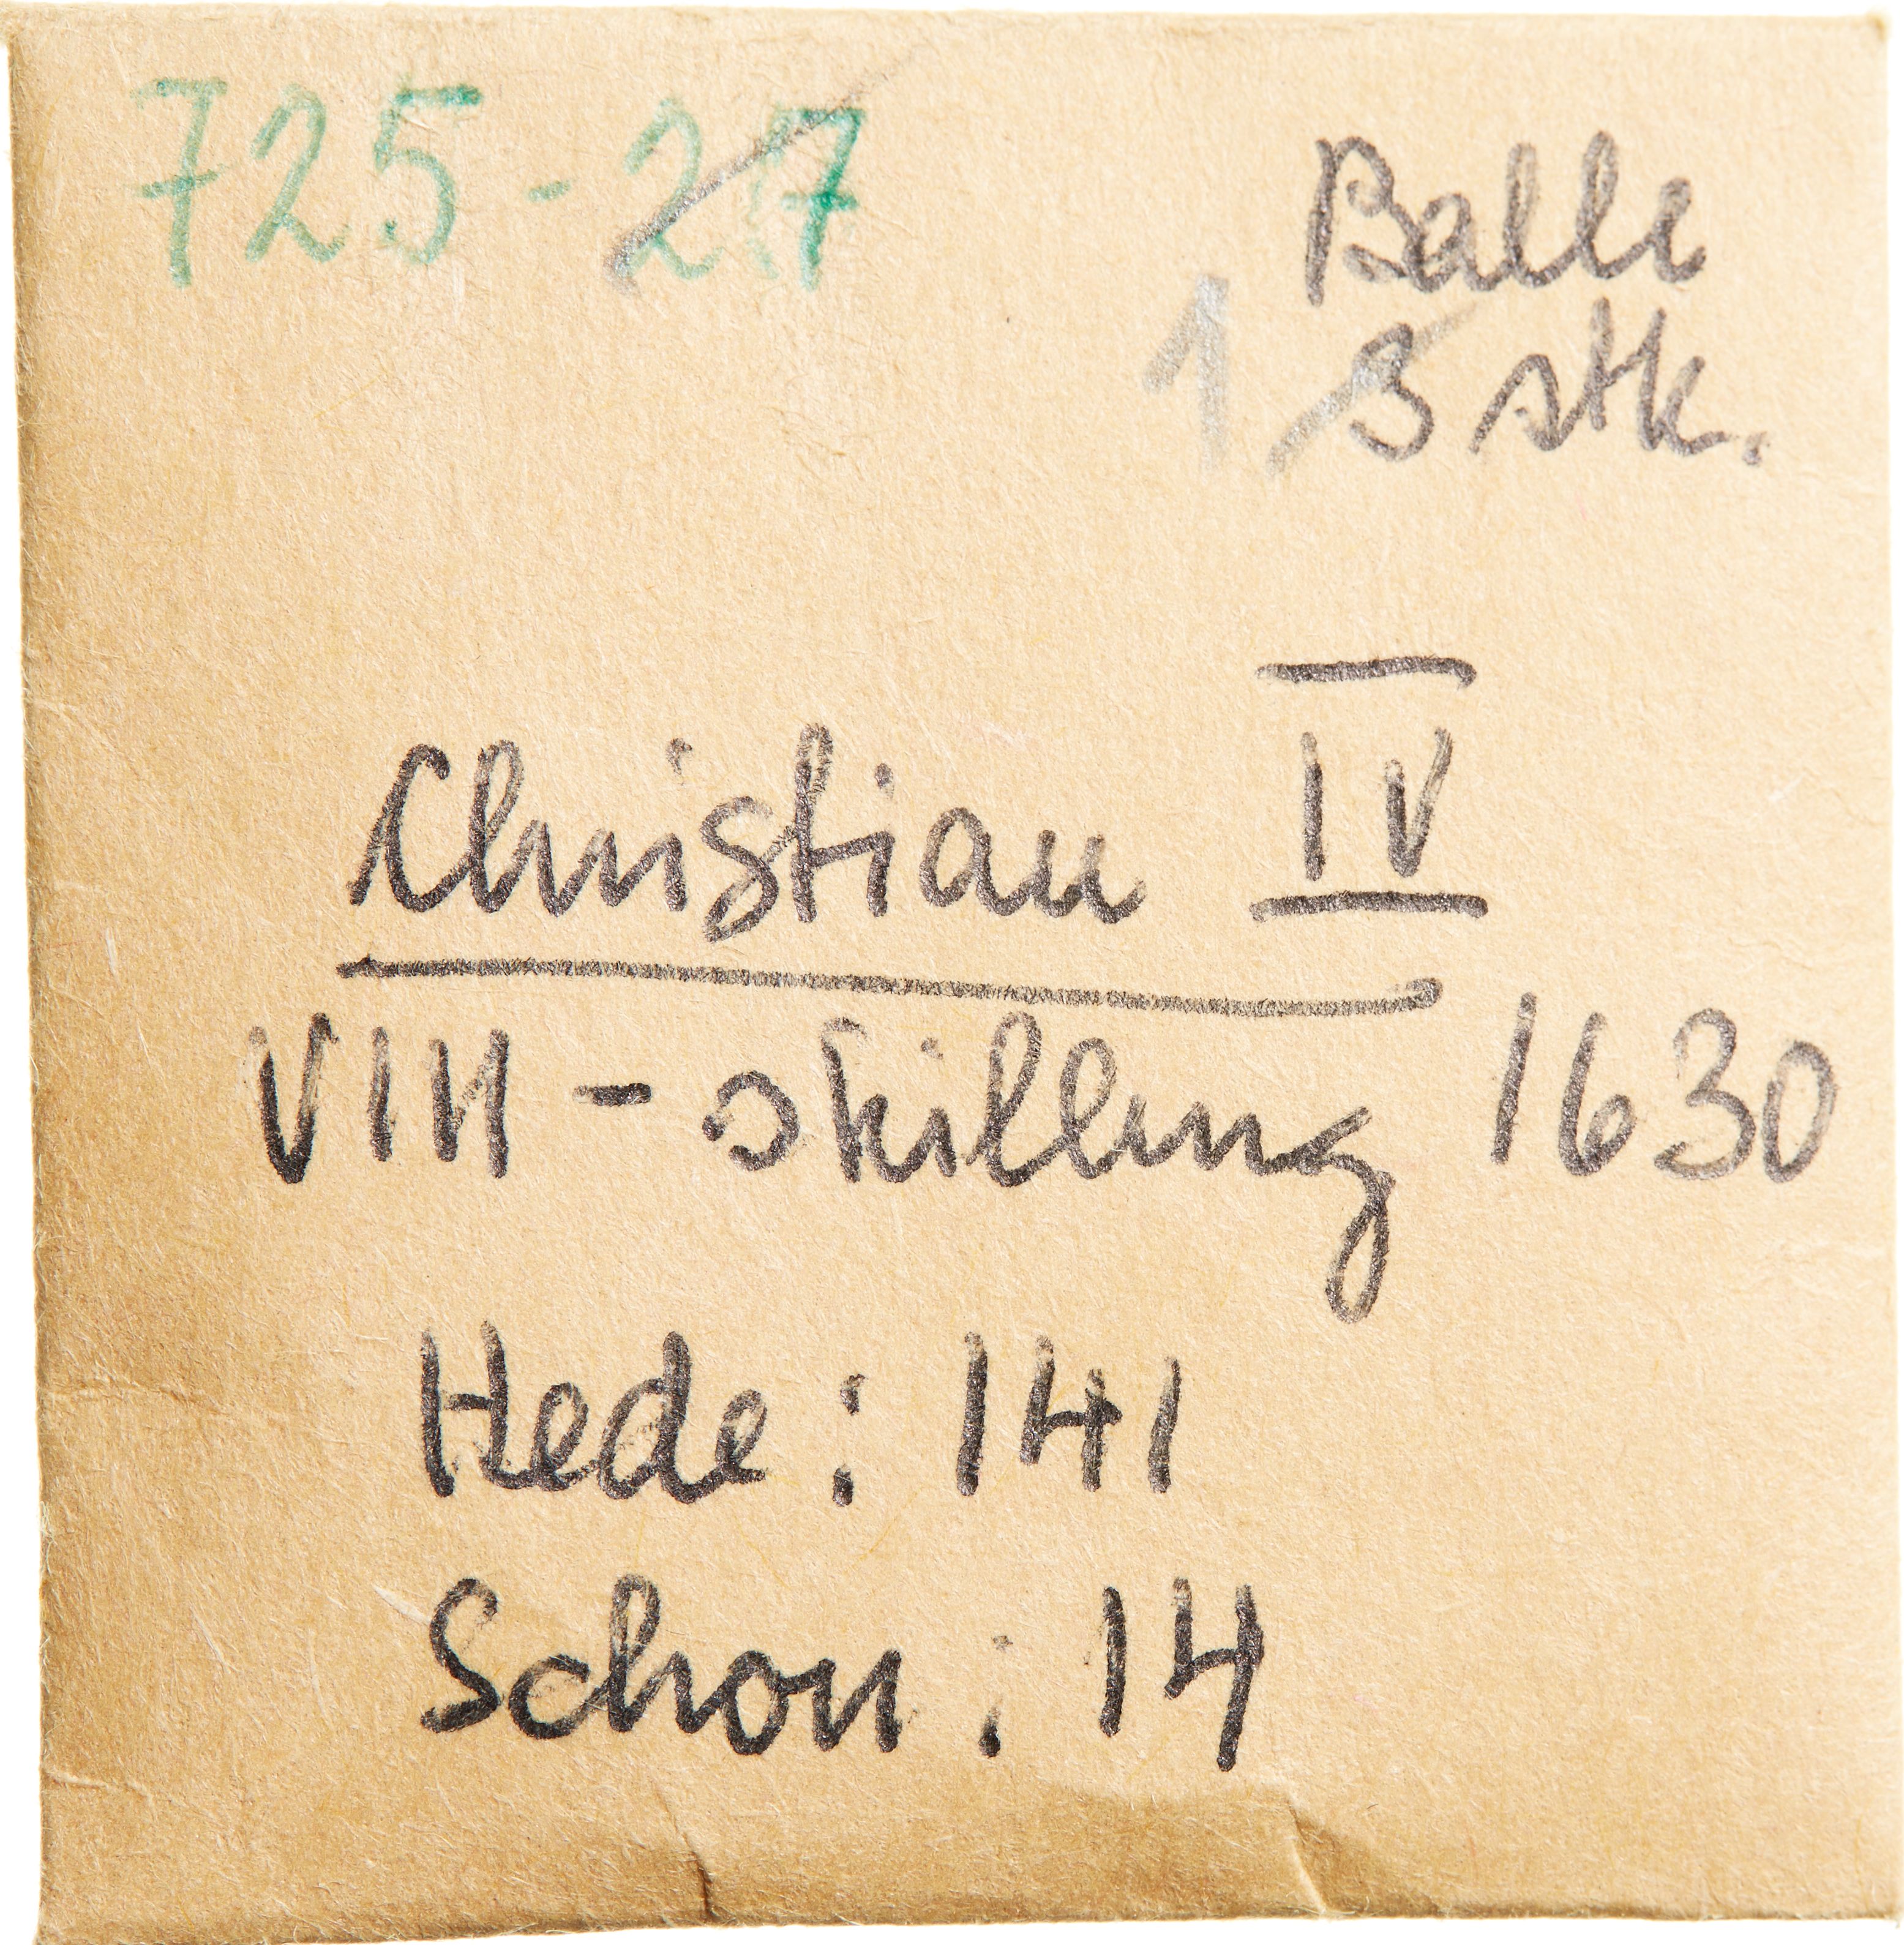 725-27
Balle
1 3 stk.
Christian IV
VIII - skilling 1630
Hede: 141
Schou: 14